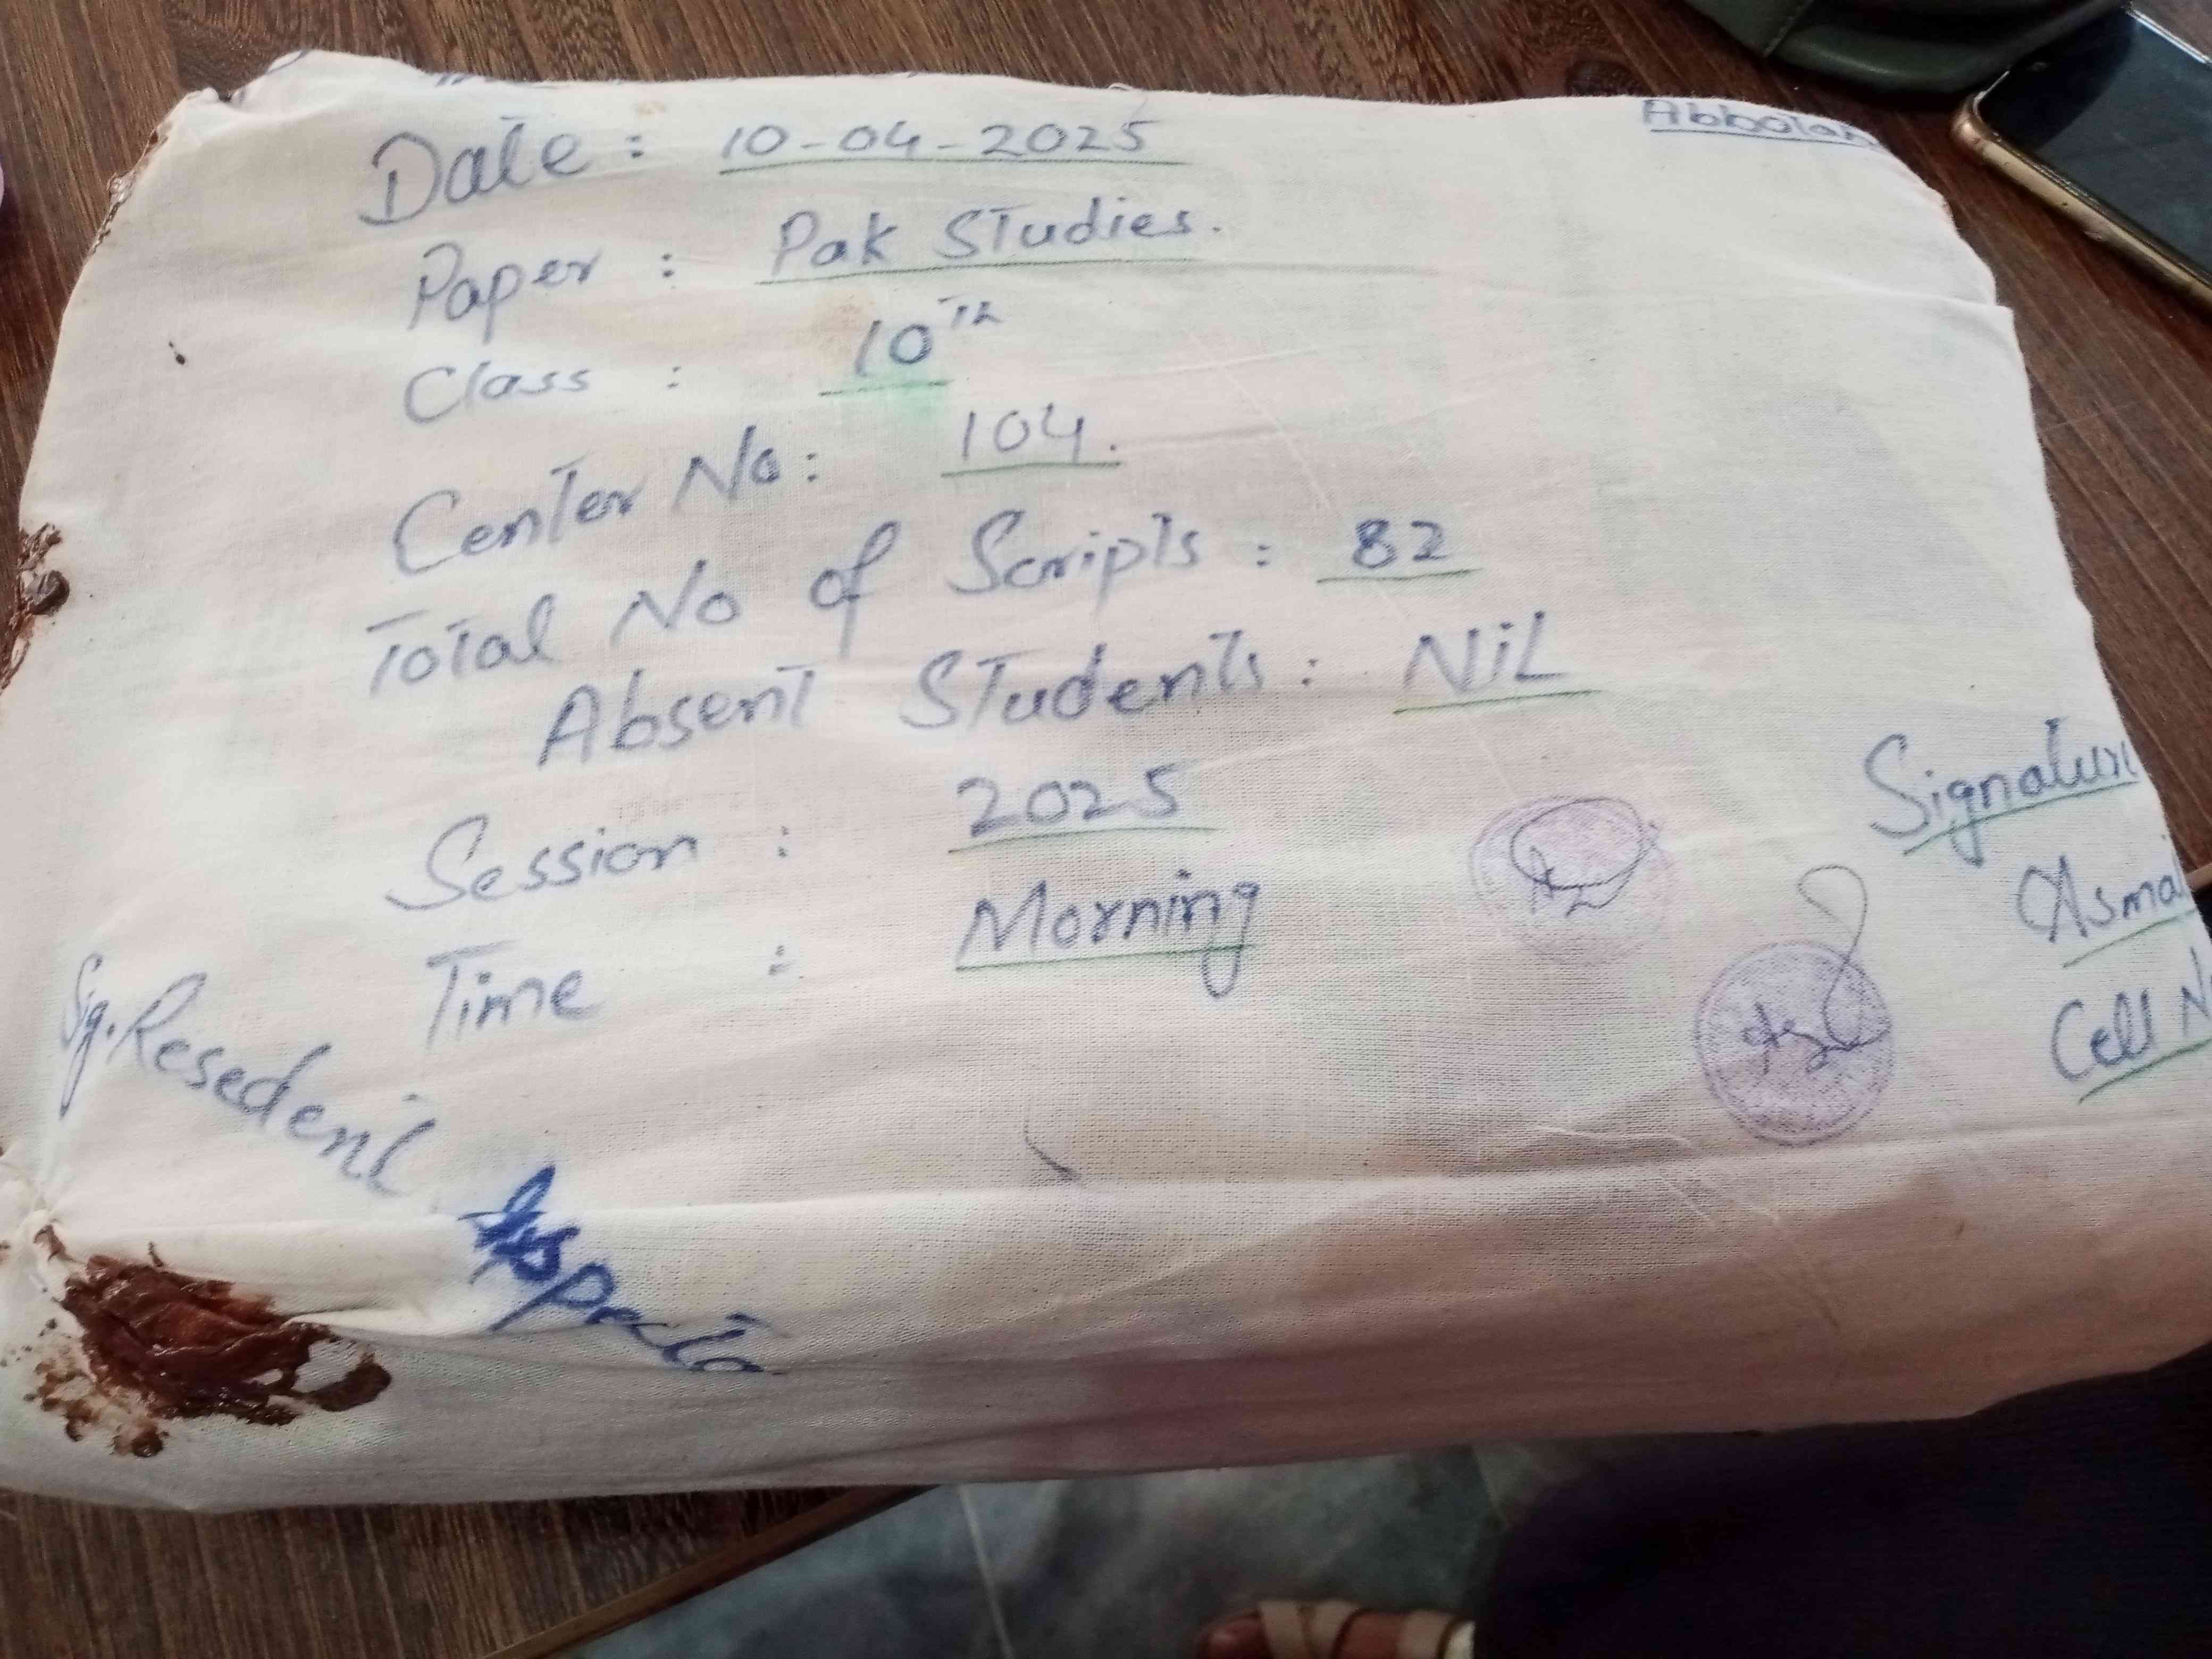 Abbotab
Date : 10-04-2025
Paper : Pak Studies.
Class : 10th
Center No : 104.
Total No of Scripts : 82
Absent Students : NiL
Session : 2025
Time : Morning
Signature
Asma
Cell N
Sig. Resedent